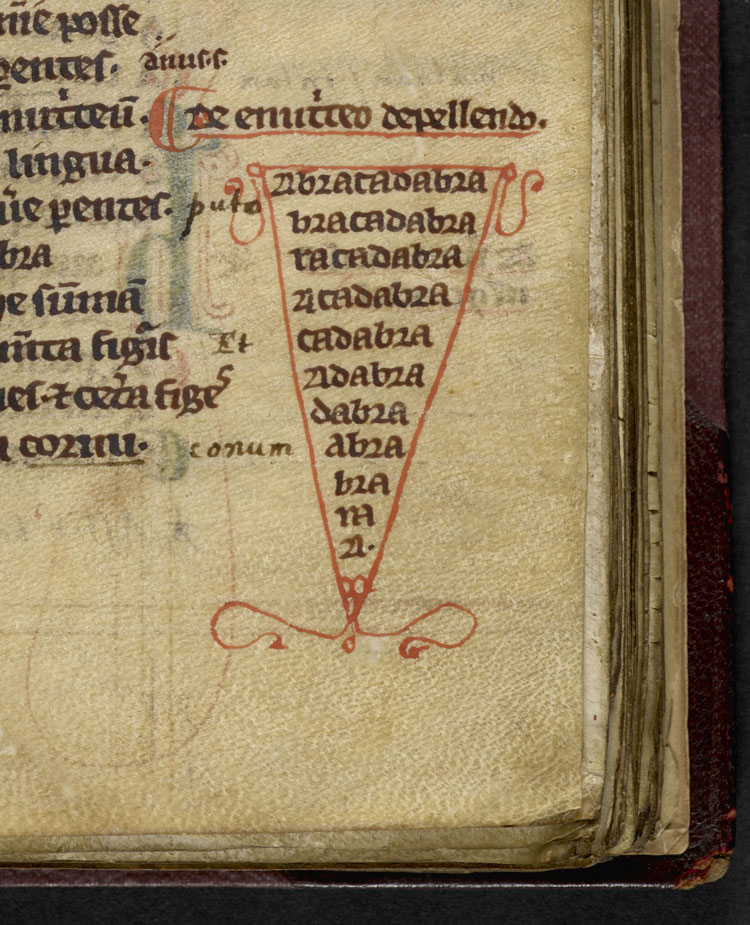 posse
pentes. anus.s.
emitteū. De emitteo depellendo.
lingua.
pentes. puto
bra
sūmā
figis Et
ues. & cetera
cornu. conum
Abracadabra
bracadabra
racadabra
acadabra
cadabra
Adabra
dabra
abra
bra
ra
A.